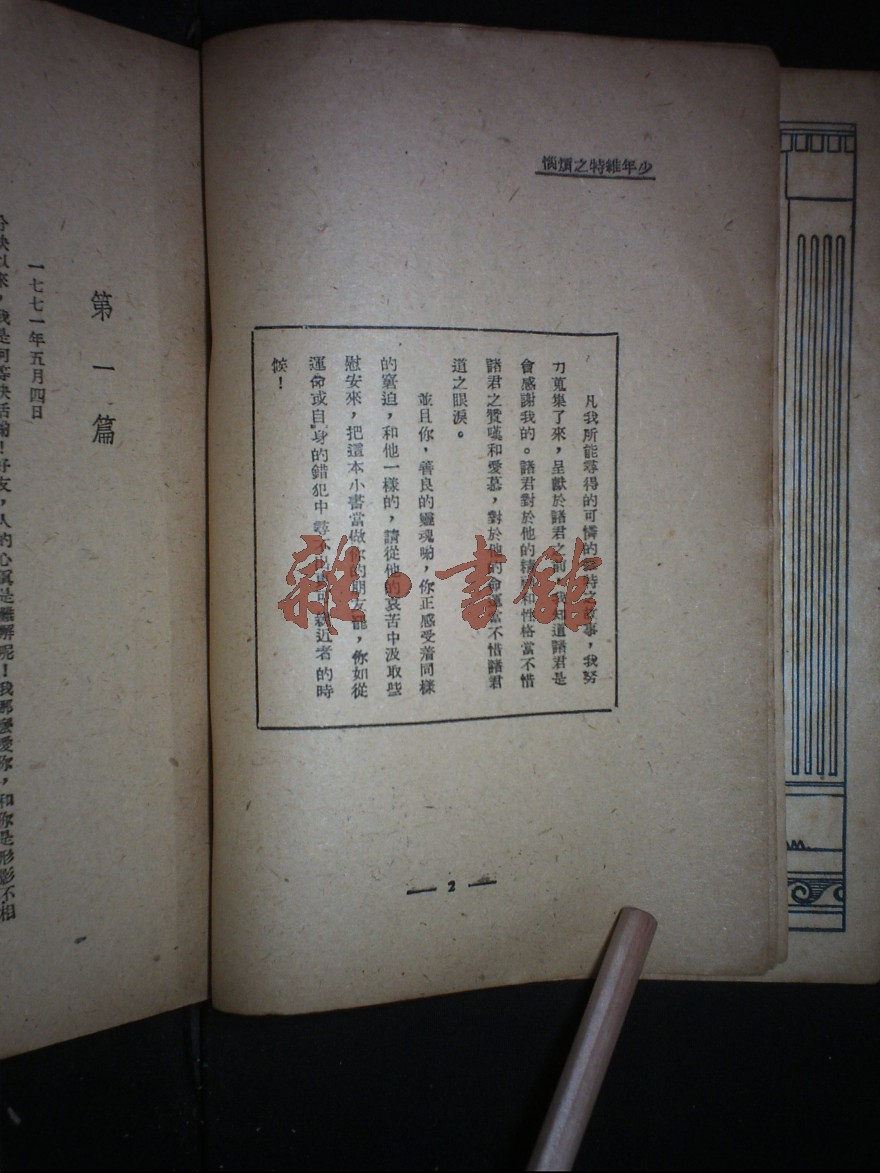 少年維特之煩惱
凡我所能尋得的可憐的維特之故事，我努
力蒐集了來，呈獻於諸君之前，我知道諸君是
會感謝我的。諸君對於他的精神和性格當不惜
諸君之贊嘆和愛慕，對於他的命運當不惜諸君
道之眼淚。
並且你，善良的靈魂喲，你正感受着同樣
的窘迫，和他一樣的，請從他的哀苦中汲取些
慰安來，把這本小書當做你的朋友罷，你如從
運命或自身的錯犯中尋不出更可親近者的時
候！
— 2 —
雜·書館
第一篇
一七七一年五月四日
以來，我是何等快活喲！好友，人的心真是難解呢！我那麼愛你，和你是形影不相